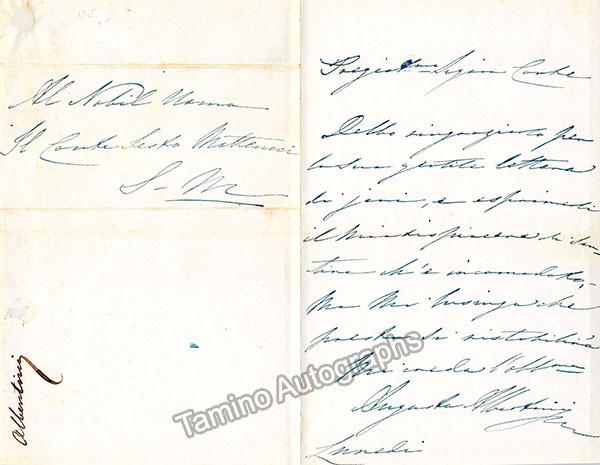 Al Nobil Uomo
Il Conte Sesto Matteucci
S-M
Albertini
Pregiat.mo Signor Conte
Debbo ringraziarlo per
la sua gentile lettera
di jeri, e esprimerli
il mio dispiacere di sen-
tire ch'è incomodato,
Ma mi lusingo che
presto si ristabilirà
Mi creda l'affma
Augusta Albertini
Lunedi
Tamino Autographs